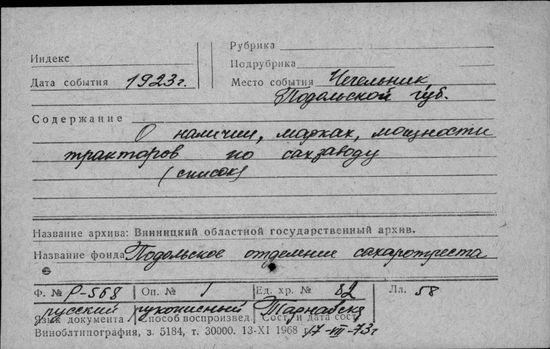 Рубрика
Индекс
Подрубрика
Дата события 1923г.
Место события Чечельник
Подольской губ.
Содержание О наличии, марках, мощности
тракторов по сахзаводу
(список)
Название архива: Винницкий областной государственный архив.
Название фонда Подольское отделение сахаротреста
Ф. № Р-568 Оп. № 1 Ед. хр. № 82 Лл. 58
русский рукописный
Язык документа Способ воспроизвед. Сост. и дата сост.
Виноблтипография, з. 5184, т. 30000. 13-XI 1968 г. 17-VII-73г